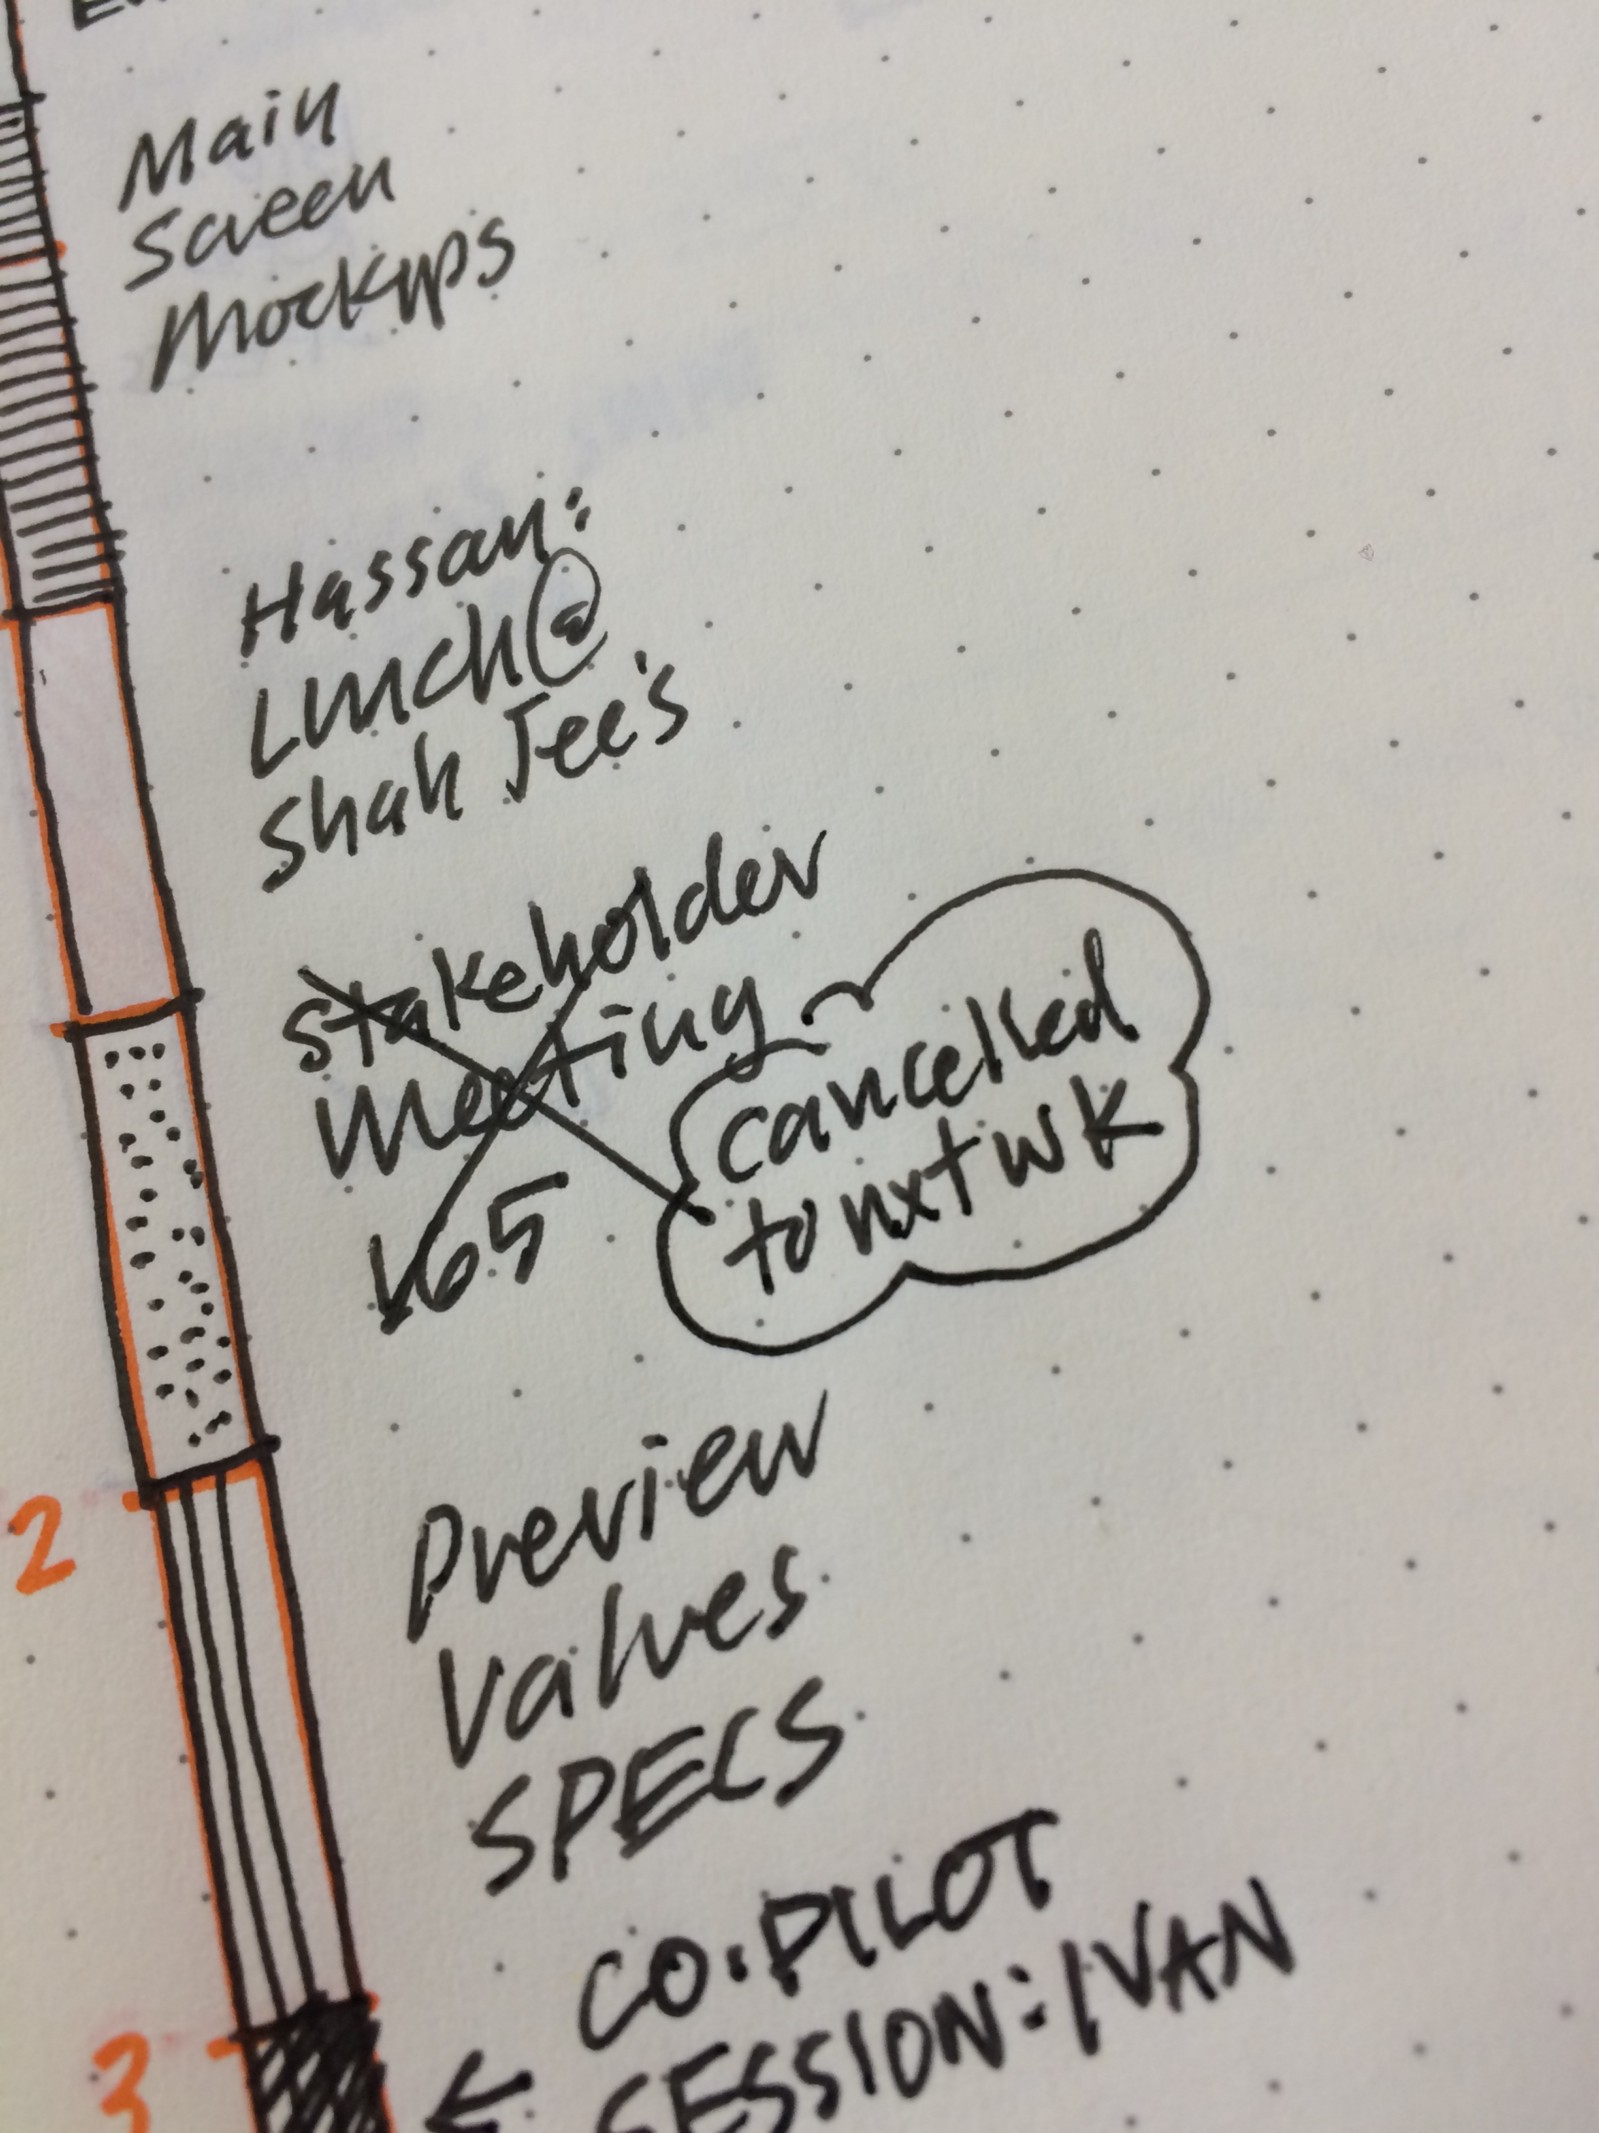 Main
Screen
Mockups
Hassan:
Lunch @
Shah Jee's
Stakeholder
Meeting
165
cancelled
to nxt wk
2
Preview
Values
SPECS
CO.PILOT
SESSION: IVAN
3